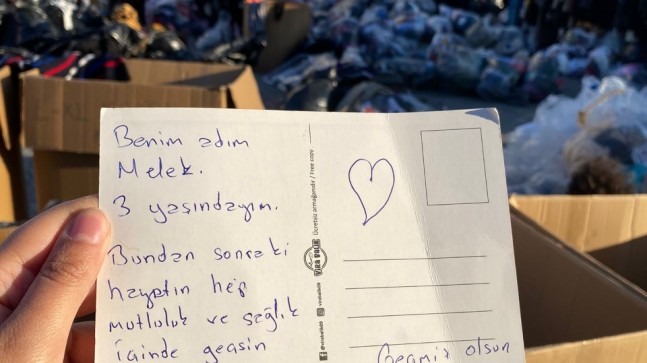 Benim adım
Melek.
3 yaşındayım.
Bundan sonraki
hayatın hep
mutluluk ve sağlık
içinde geçsin
Geçmiş olsun
Ücretsiz armağanımdır / Free copy